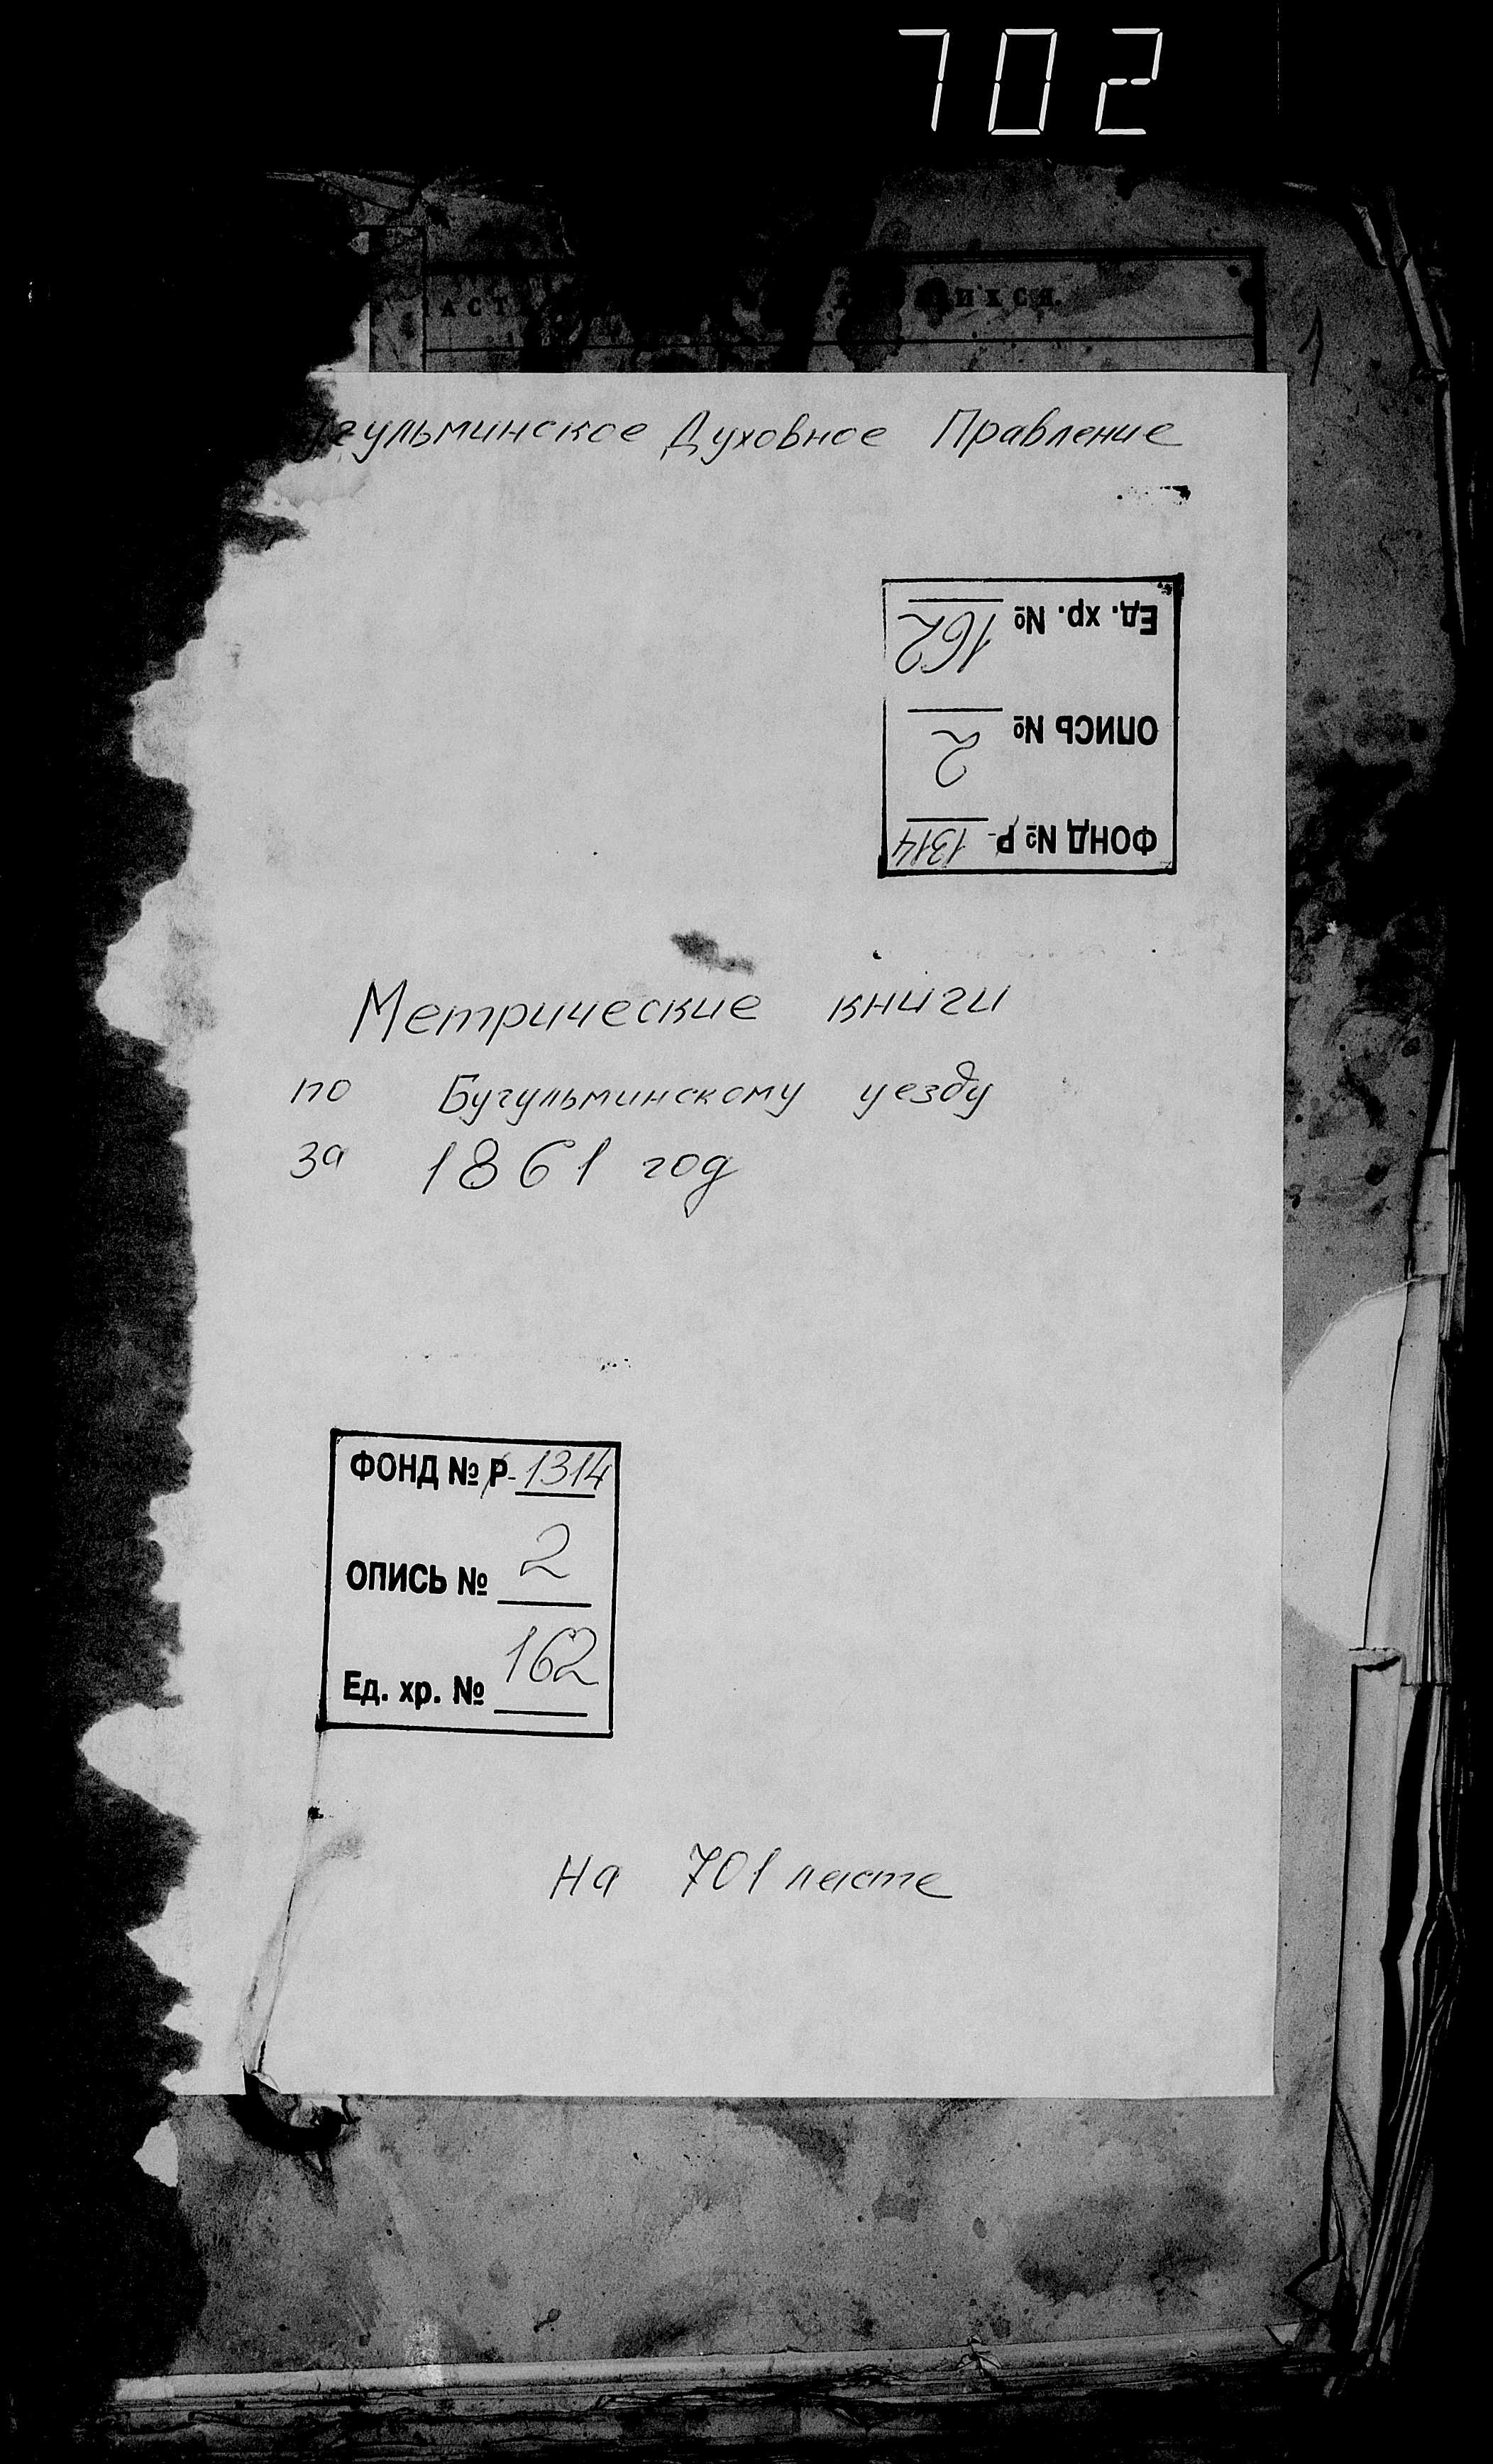 702
1
угульминское Духовное Правление
Ед. хр. № 162
ОПИСЬ № 2
ФОНД № Р- 1314
Метрические книги
по Бугульминскому уезду
за 1861 год
ФОНД № Р- 1314
ОПИСЬ № 2
Ед. хр. № 162
на 701 листе